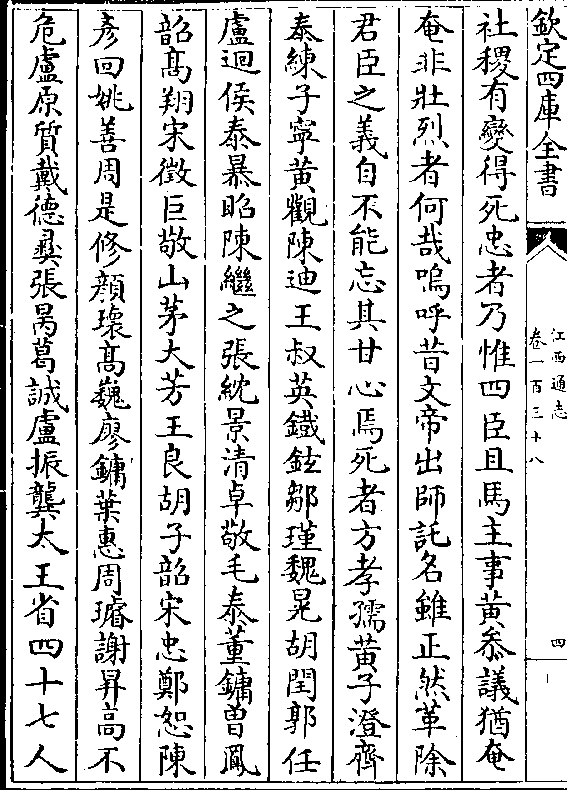 欽定四庫全書
江西通志
卷一百三十八
四
社稷有變得死忠者乃惟四臣且馬主事黃叅議猶奄
奄非壯烈者何哉嗚呼昔文帝出師託名雖正然革除
君臣之義自不能忘其甘心焉死者方孝孺黃子澄齊
泰練子寧黃觀陳迪王叔英鐡鉉鄒瑾魏冕胡閏郭任
盧迥侯泰暴昭陳繼之張紞景清卓敬毛泰董鏞曽鳳
韶高翔宋徵巨敬山茅大芳王良胡子韶宋忠鄭恕陳
彥回姚善周是修顔瓌高巍廖鏞葉惠周璿謝昇高不
危盧原質戴德彞張昺葛誠盧振龔太王省四十七人